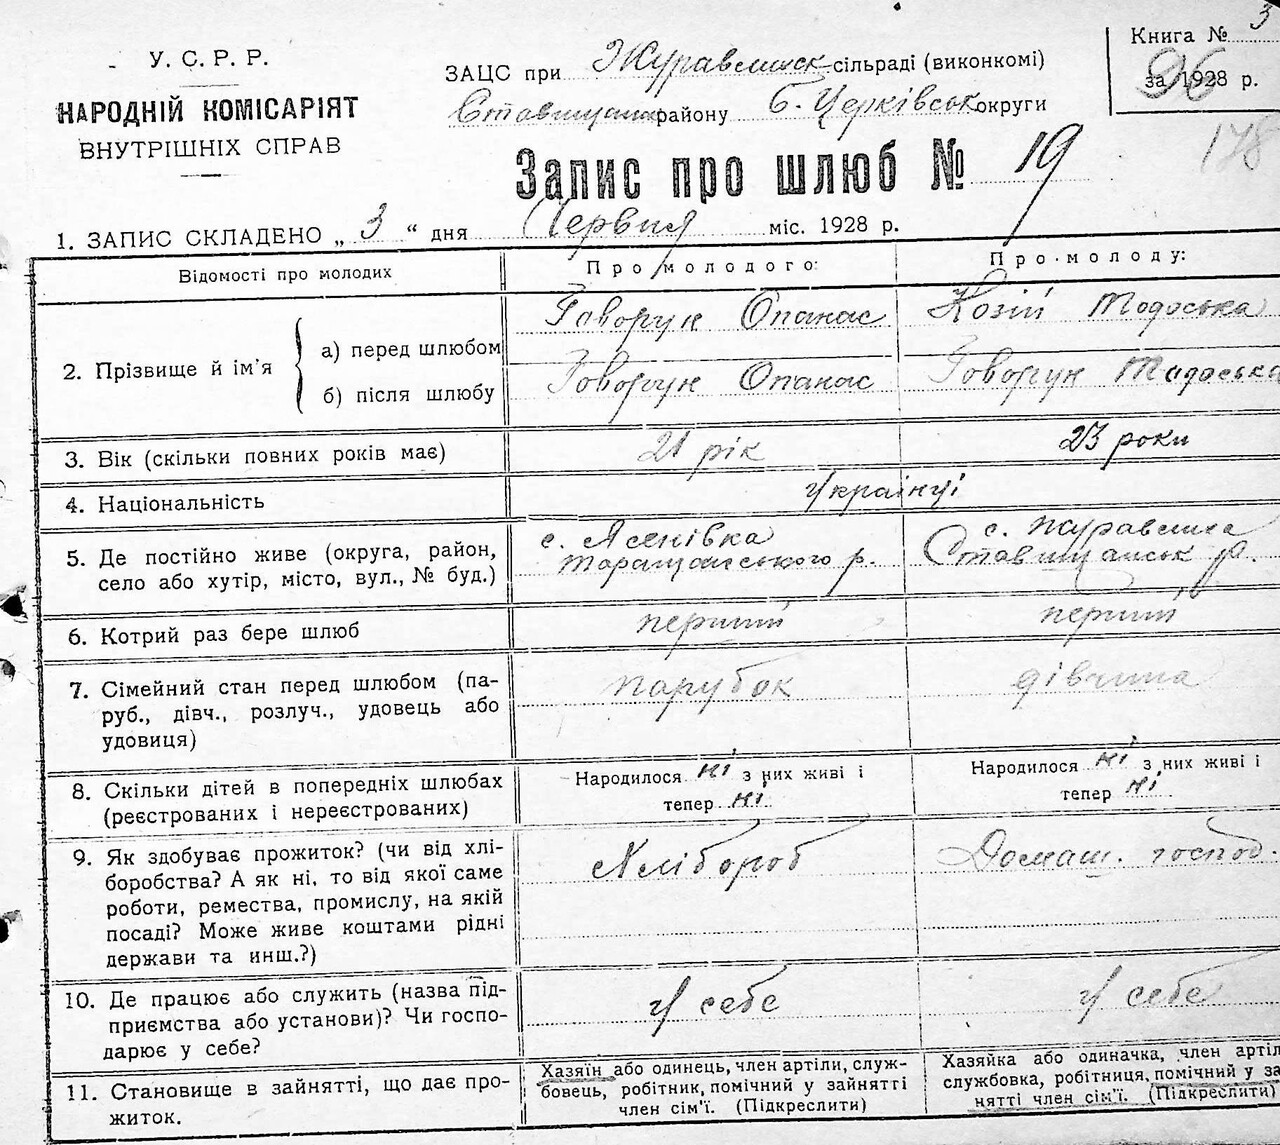 У. С. Р. Р.
НАРОДНІЙ КОМІСАРІЯТ
ВНУТРІШНІХ СПРАВ
ЗАЦС при Журавлиськ-сільраді (виконкомі)
Ставищанськ району Б. Церківськ округи
Книга № 3
за 1928 р.
96
178
Запис про шлюб № 19
1. ЗАПИС СКЛАДЕНО „ 3 “ дня Червня міс. 1928 р.
Відомості про молодих
Про молодого:
Про молоду:
2. Прізвище й ім'я
а) перед шлюбом
Говорун Опанас
Козій Тодоська
б) після шлюбу
Говорун Опанас
Говорун Тодоська
3. Вік (скільки повних років має)
21 рік
23 роки
4. Національність
Українці
5. Де постійно живе (округа, район,
село або хутір, місто, вул., № буд.)
с. Ясенівка
Таращанського р.
с. Журавлиха
Ставищанськ р.
6. Котрий раз бере шлюб
перший
перший
7. Сімейний стан перед шлюбом (па-
руб., дівч., розлуч., удовець або
удовиця)
парубок
дівчина
8. Скільки дітей в попередніх шлюбах
(реєстрованих і нереєстрованих)
Народилося ні з них живі і
тепер ні
Народилося ні з них живі і
тепер ні
9. Як здобуває прожиток? (чи від хлі-
боробства? А як ні, то від якої саме
роботи, ремества, промислу, на якій
посаді? Може живе коштами рідні
держави та инш.?)
Хлібороб
Домаш. господ.
10. Де працює або служить (назва під-
приємства або установи)? Чи госпо-
дарює у себе?
У себе
У себе
11. Становище в зайнятті, що дає про-
житок.
Хазяїн або одинець, член артіли, служ-
бовець, робітник, помічний у зайнятті
член сім'ї. (Підкреслити)
Хазяйка або одиначка, член артіл
службовка, робітниця, помічний у за
нятті член сім'ї. (Підкреслити)